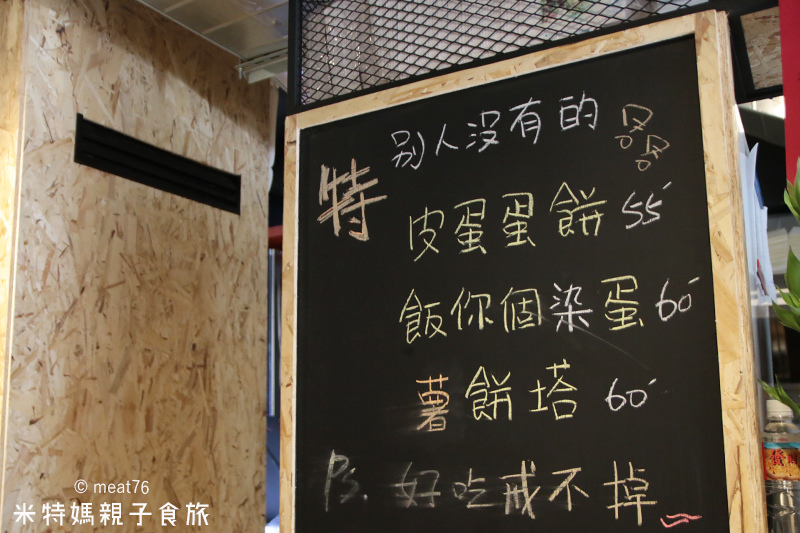 別人沒有的
特
皮蛋蛋餅 55
飯你個染蛋 60
薯餅塔 60
Ps. 好吃戒不掉
© meat76
米特媽親子食旅